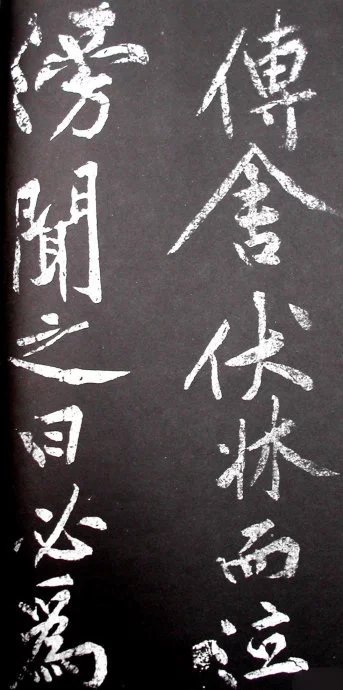 傳舍伏牀而泣
徬聞之曰必爲